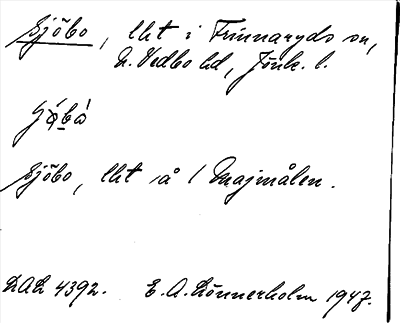 Sjöbo, lht i Frinnaryds sn,
N. Vedbo hd, Jönk. l.
Sjöbo, lht så / Majmålen.
DAL 4392. E. A. Lönnerholm 1947.